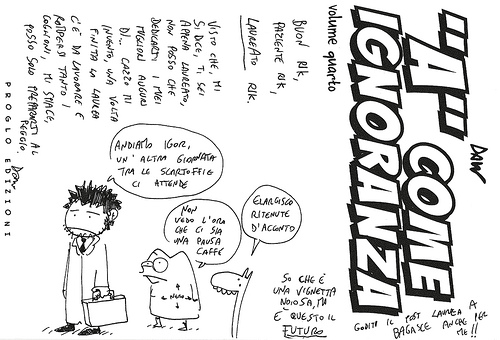 volume quarto
"A" COME
IGNORANZA
DAW
BUON RIK,
PAZIENTE RIK,
LAUREATO RIK,
VISTO CHE, MI
SI DICE, TI SEI
APPENA LAUREATO,
NON POSSO CHE
DEDICARTI I MIEI
MIGLIORI AUGURI
DI... CAZZO TI
INVENTO, UNA VOLTA
FINITA LA LAUREA
C'È DA LAVORARE E
ROMPERSI TANTO I
COGLIONI, MI SPIACE,
POSSO SOLO PREPARARTI AL
PEGGIO.
DAW
PROGLO EDIZIONI
ANDIAMO IGOR,
UN'ALTRA GIORNATA
TRA LE SCARTOFFIE
CI ATTENDE
NON
VEDO L'ORA
CHE CI SIA
UNA PAUSA
CAFFÈ
ELARGISCO
RITENUTE
D'ACCONTO
NERO
SO CHE È
UNA VIGNETTA
NOIOSA, MA
È QUESTO IL
FUTURO
GODITI IL POST LAUREA A
BAGASCE ANCHE PER
ME!!